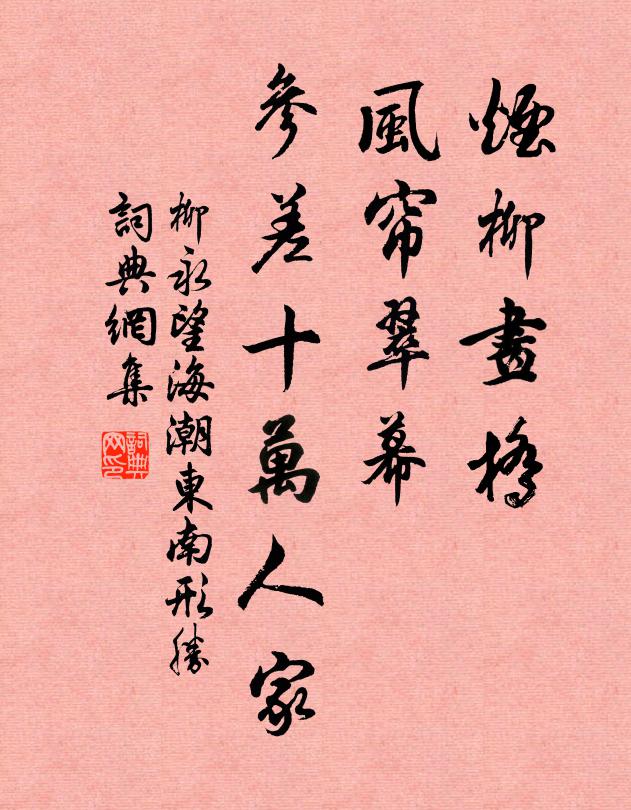 煙柳畫橋
風帘翠幕
參差十萬人家
柳永望海潮東南形勝
詞典網集
詞典网印